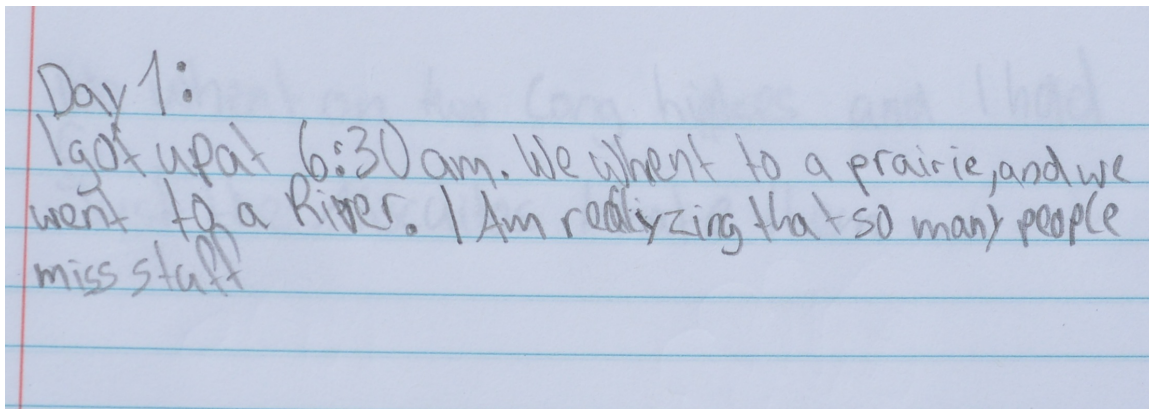 Day 1:
I got up at 6:30 am. We Whent to a prairie, and we
went to a River. I Am realiyzing that so many people
miss stuff